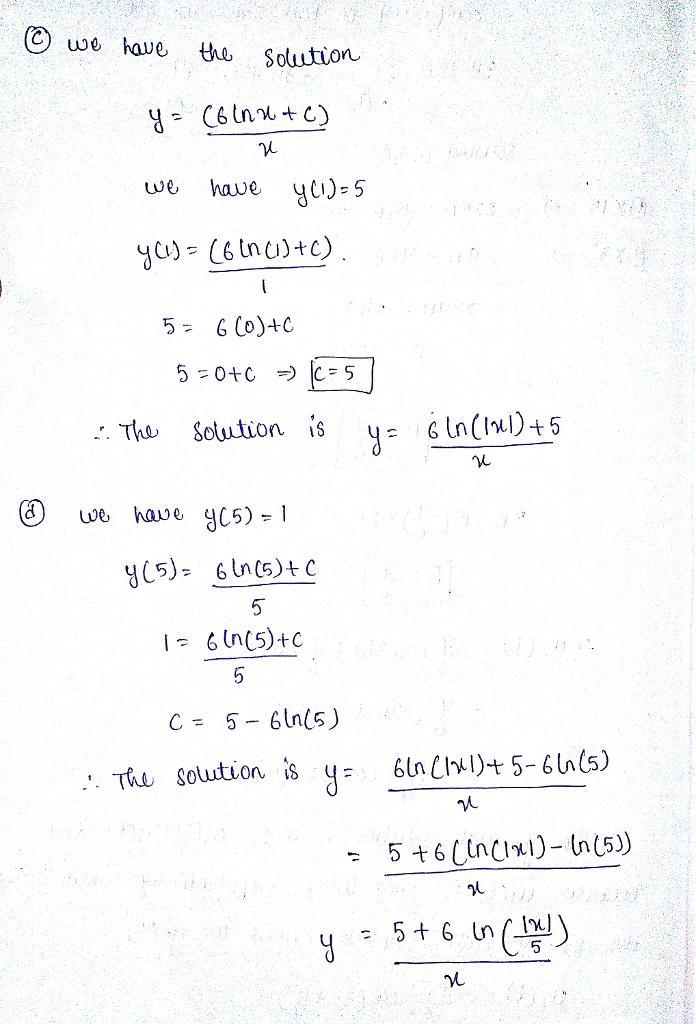 (c) we have the solution
y = (6lnx + c)
x
we have y(1)=5
y(1) = (6ln(1)+c).
1
5 = 6(0)+c
5 = 0+c ⇒ c=5
∴ The solution is y = 6ln(|x|)+5
x
(d) we have y(5) = 1
y(5) = 6ln(5)+c
5
1 = 6ln(5)+c
5
c = 5 - 6ln(5)
∴ The solution is y = 6ln(|x|)+5-6ln(5)
x
= 5+6(ln(|x|)-ln(5))
x
y = 5+6 ln(|x|/5)
x